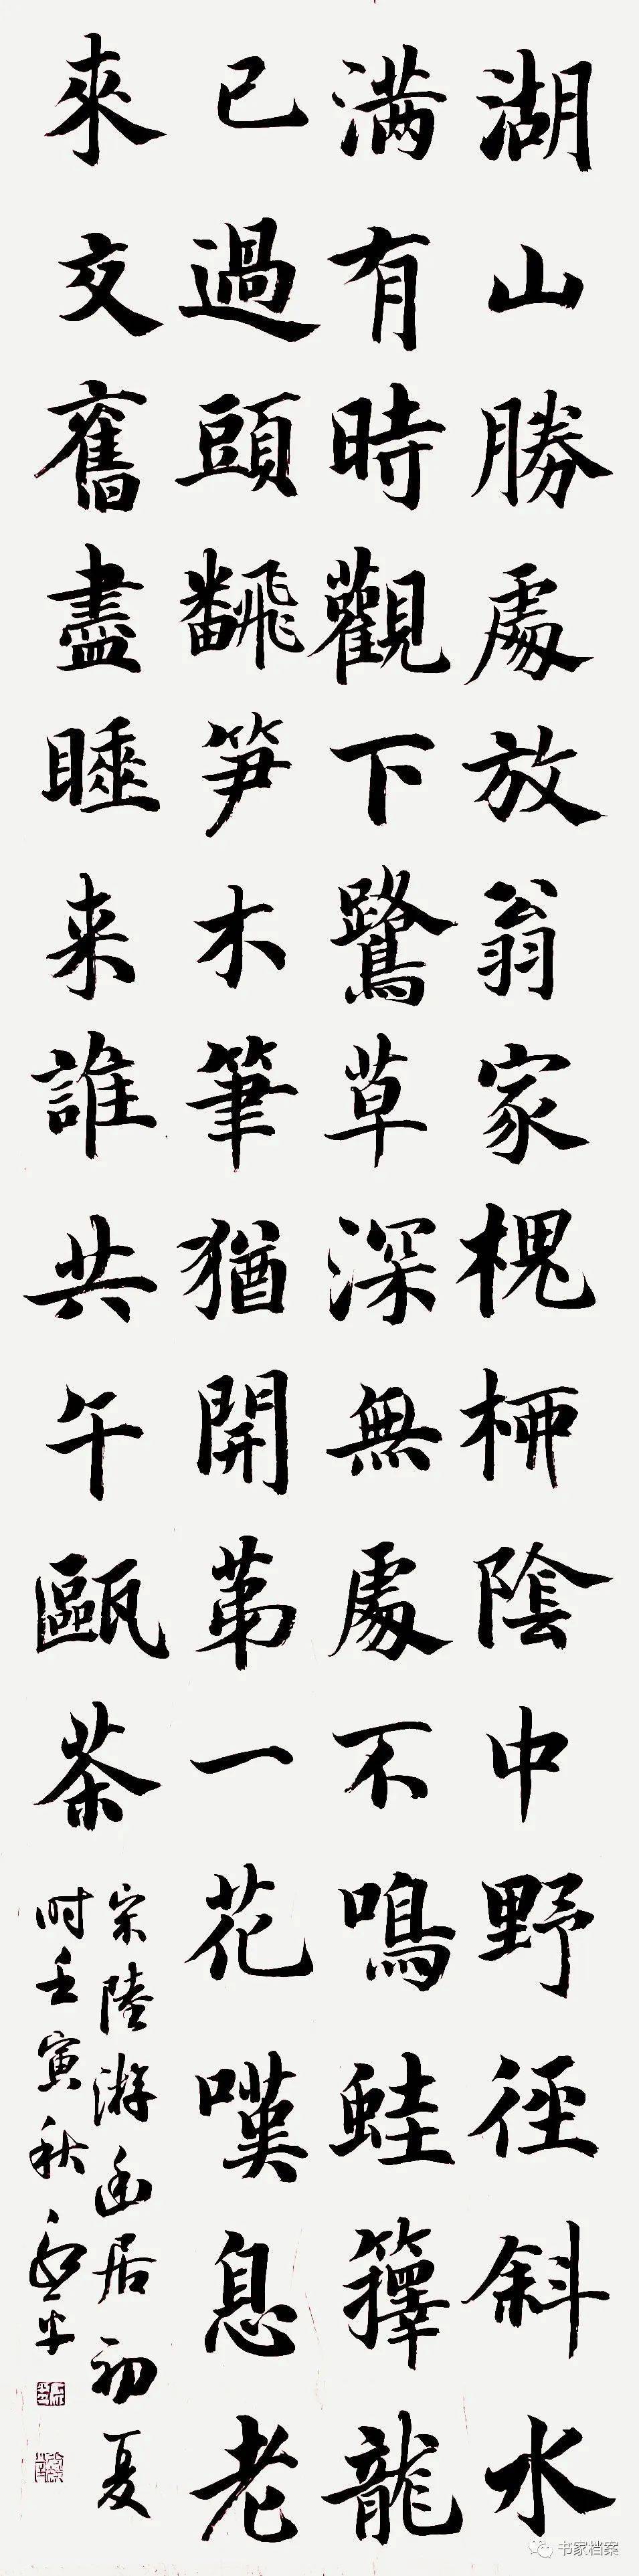 湖山勝處放翁家槐柳陰中野徑斜水
满有時觀下鷺草深無處不鳴蛙籜龍
已過頭飜笋木筆猶開第一花嘆息老
來交舊盡睡来誰共午甌茶
宋陸游幽居初夏
时壬寅秋平
书家档案